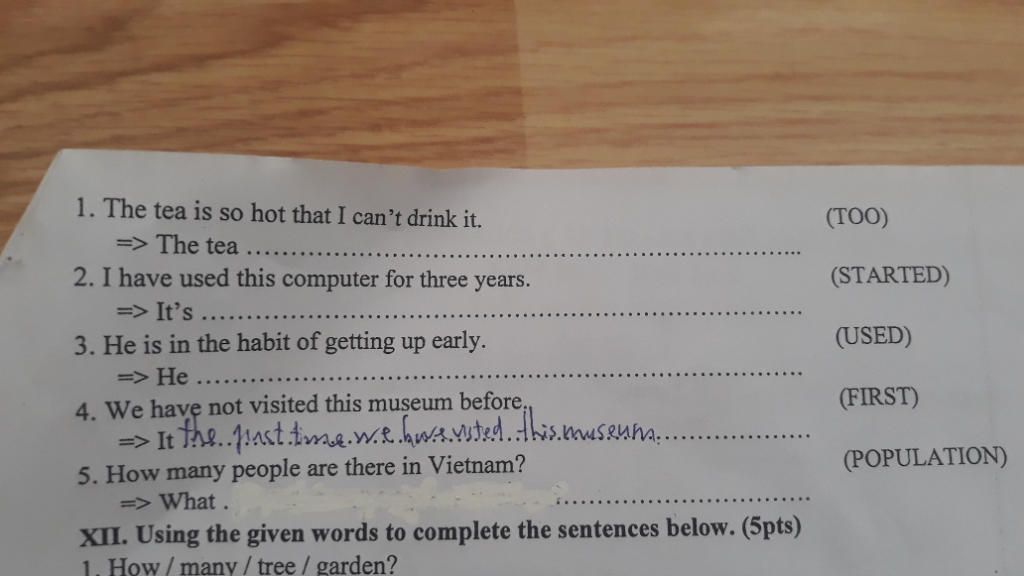 1. The tea is so hot that I can't drink it. (TOO)
=> The tea ................................................................................
2. I have used this computer for three years. (STARTED)
=> It's ................................................................................
3. He is in the habit of getting up early. (USED)
=> He ................................................................................
4. We have not visited this museum before. (FIRST)
=> It the first time we have visted this museum.....................
5. How many people are there in Vietnam? (POPULATION)
=> What . ........................................
XII. Using the given words to complete the sentences below. (5pts)
1. How / many / tree / garden?